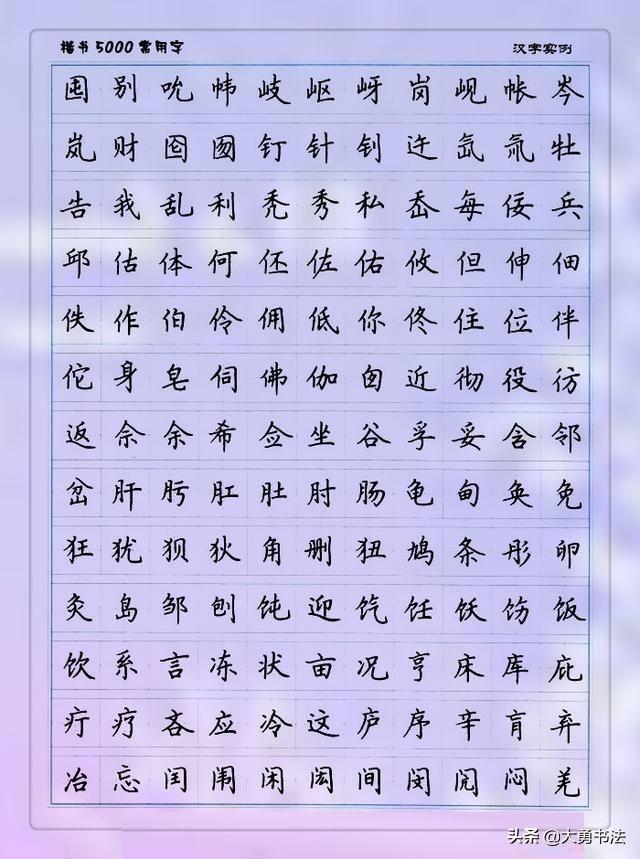 楷书5000常用字 汉字实例
囤别吮帏岐岖岈岗岘帐岑
岚财囵囫钉针钊迕氙氚牡
告我乱利秃秀私岙每佞兵
邱估体何伾佐佑攸但伸佃
佚作伯伶佣低你佟住位伴
佗身皂伺佛伽囱近彻役彷
返佘余希佥坐谷孚妥含邻
岔肝肟肛肚肘肠龟甸奂免
狂犹狈狄角删狃鸠条彤卵
灸岛邹刨饨迎饩饪饫饬饭
饮系言冻状亩况亨床库庇
疔疗吝应冷这庐序辛肓弃
冶忘闰闱闲闳间闵闶闷羌
头条 @大勇书法